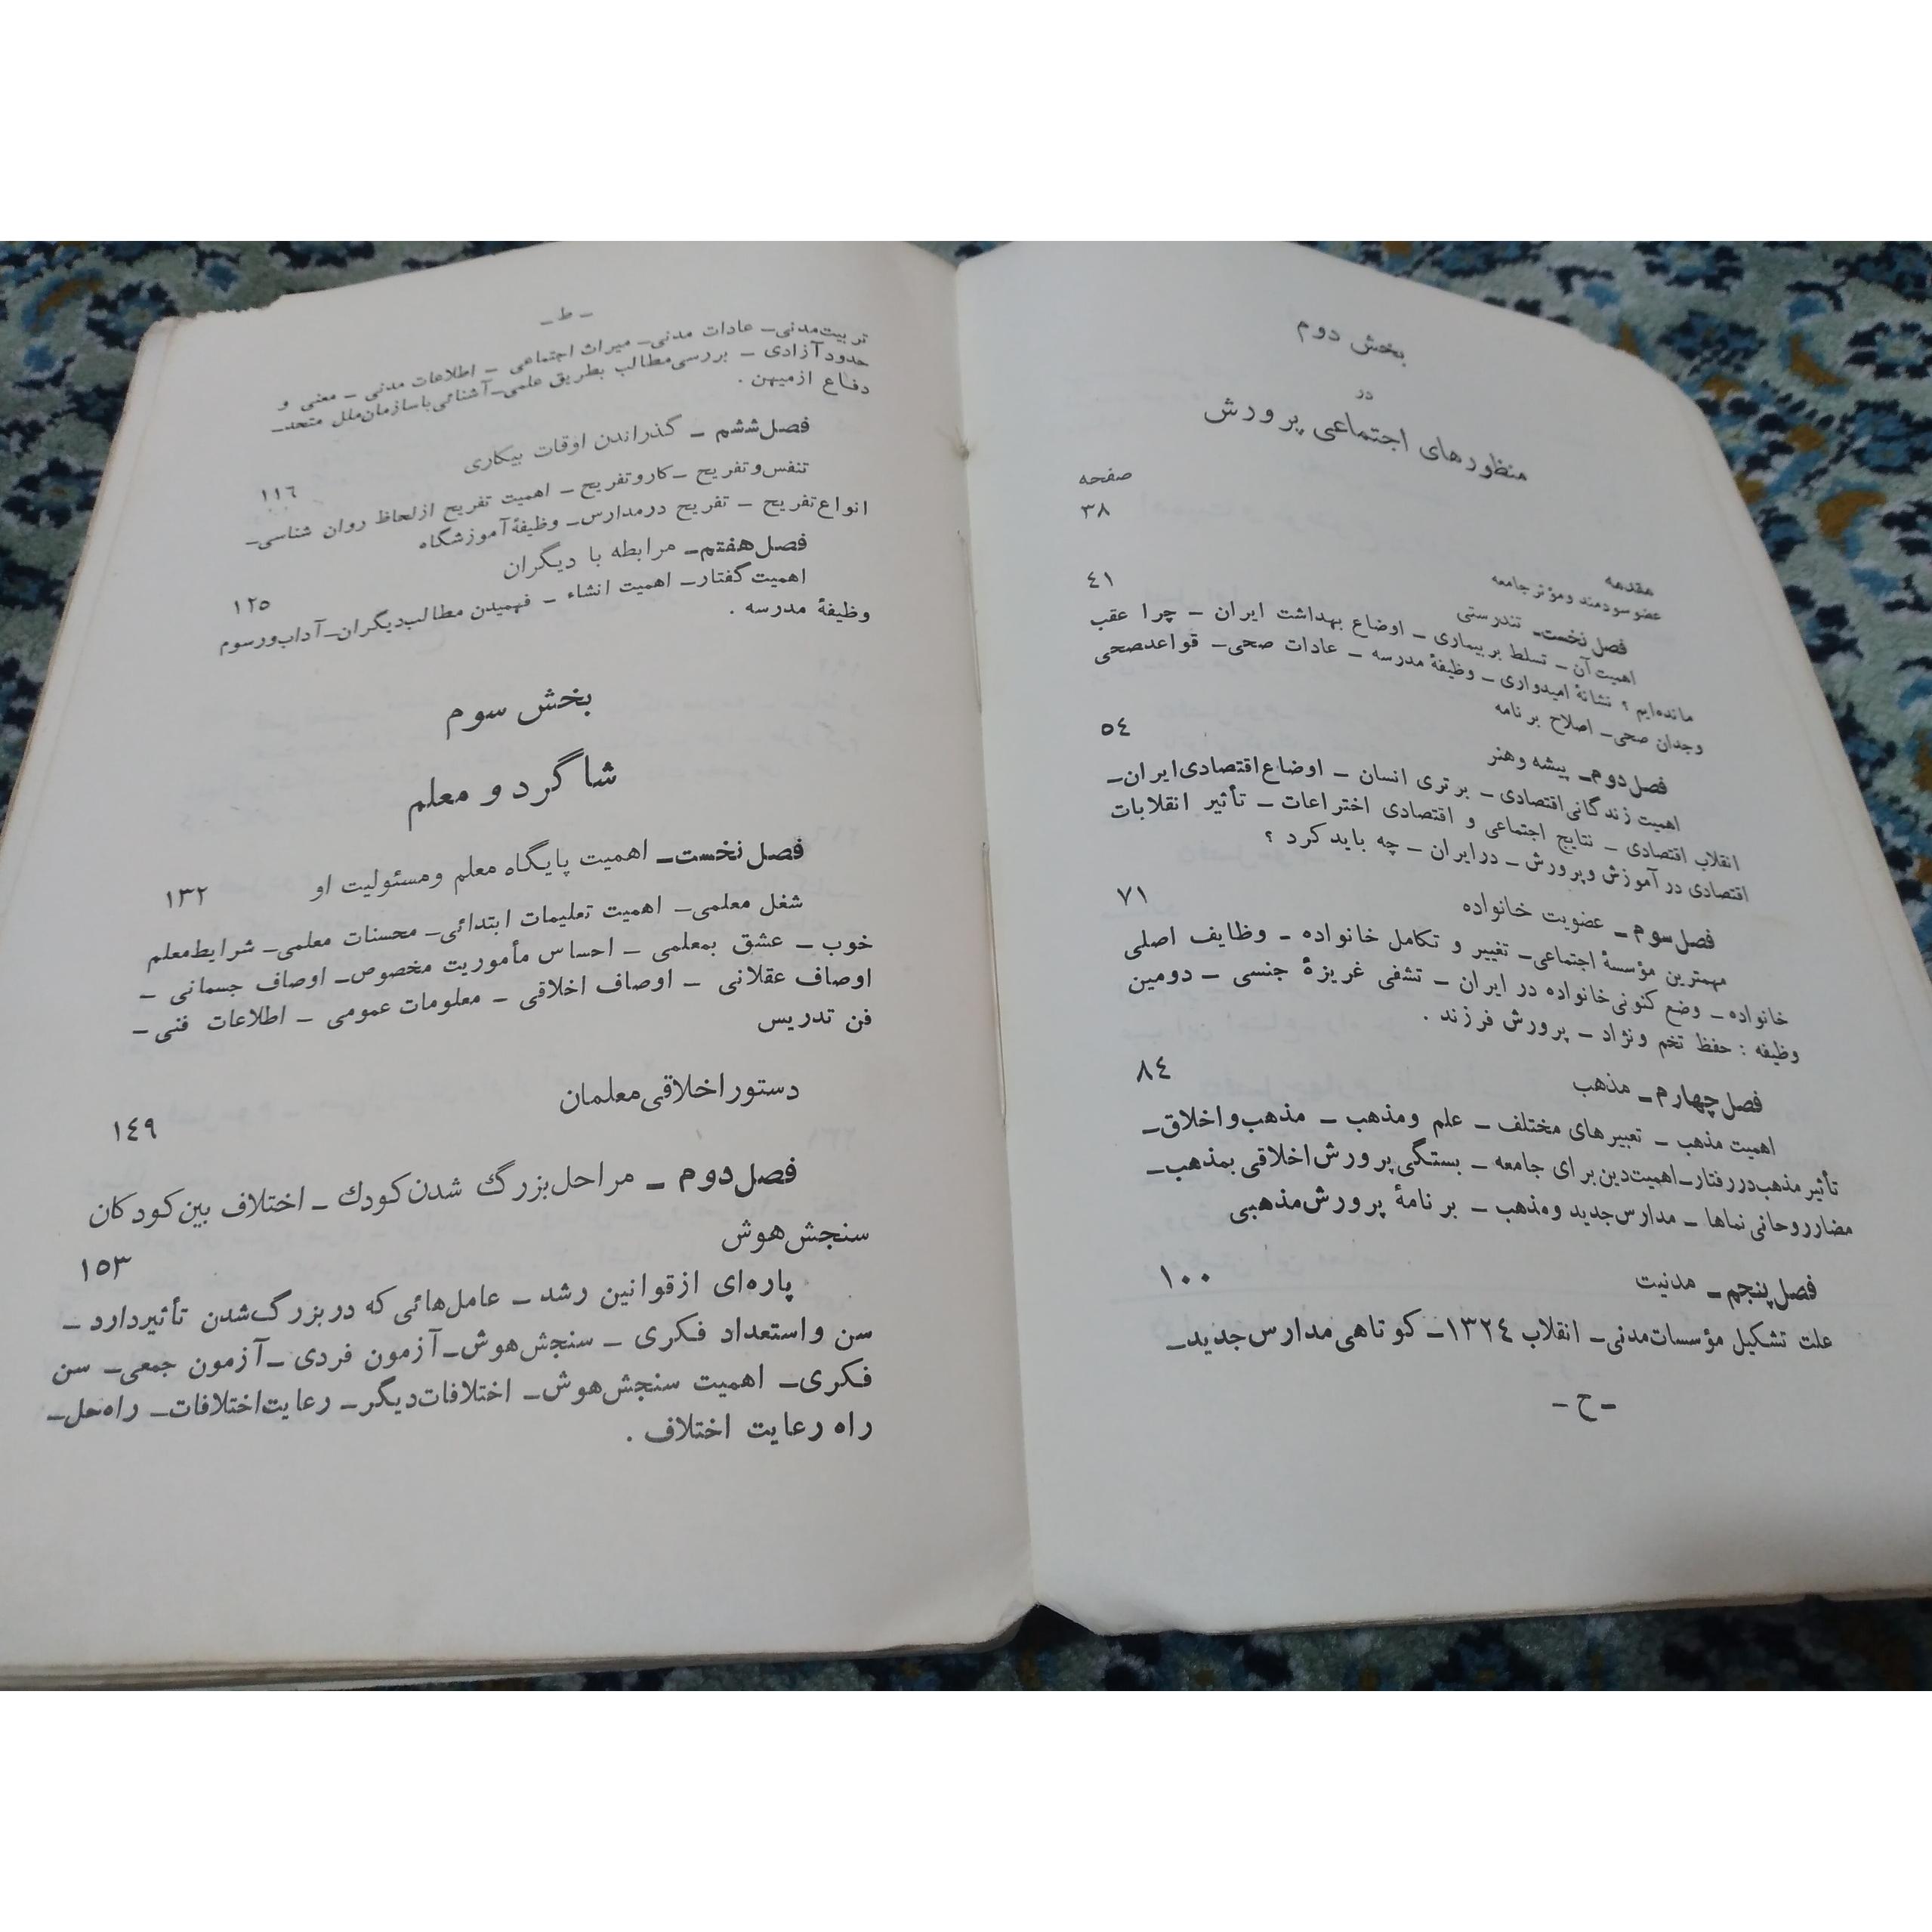 بخش دوم
در
منظورهای اجتماعی پرورش
صفحه
مقدمه ۳۸
عضو سودمند ومؤثر جامعه
فصل نخست ـ تندرستی ٤١
اهمیت آن ـ تسلط بر بیماری ـ اوضاع بهداشت ایران ـ چرا عقب
مانده‌ایم ؟ نشانهٔ امیدواری ـ وظیفهٔ مدرسه ـ عادات صحی ـ قواعد صحی
وجدان صحی ـ اصلاح برنامه
فصل دوم ـ پیشه وهنر ٥٤
اهمیت زندگانی اقتصادی ـ برتری انسان ـ اوضاع اقتصادی ایران ـ
انقلاب اقتصادی ـ نتایج اجتماعی و اقتصادی اختراعات ـ تأثیر انقلابات
اقتصادی در آموزش وپرورش ـ درایران ـ چه باید کرد ؟
فصل سوم ـ عضویت خانواده ۷۱
مهمترین مؤسسهٔ اجتماعی ـ تغییر و تکامل خانواده ـ وظایف اصلی
خانواده ـ وضع کنونی خانواده در ایران ـ تشفی غریزهٔ جنسی ـ دومین
وظیفه : حفظ تخم ونژاد ـ پرورش فرزند .
فصل چهارم ـ مذهب ٨٤
اهمیت مذهب ـ تعبیرهای مختلف ـ علم ومذهب ـ مذهب واخلاق ـ
تأثیر مذهب دررفتار ـ اهمیت دین برای جامعه ـ بستگی پرورش اخلاقی بمذهب ـ
مضار روحانی نماها ـ مدارس جدید ومذهب ـ برنامهٔ پرورش مذهبی
فصل پنجم ـ مدنیت ۱۰۰
علت تشکیل مؤسسات مدنی ـ انقلاب ١٣٢٤ ـ کوتاهی مدارس جدید ـ
ـ ح ـ
ـ ط ـ
تربیت مدنی ـ عادات مدنی ـ میراث اجتماعی ـ اطلاعات مدنی ـ معنی و
حدود آزادی ـ بررسی مطالب بطریق علمی ـ آشنائی با سازمان ملل متحد ـ
دفاع ازمیهن .
فصل ششم ـ گذراندن اوقات بیکاری ١١٦
تنفس وتفریح ـ کار وتفریح ـ اهمیت تفریح ازلحاظ روان شناسی ـ
انواع تفریح ـ تفریح درمدارس ـ وظیفهٔ آموزشگاه
فصل هفتم ـ مرابطه با دیگران ١٢٥
اهمیت گفتار ـ اهمیت انشاء ـ فهمیدن مطالب دیگران ـ آداب ورسوم
وظیفهٔ مدرسه .
بخش سوم
شاگرد و معلم
فصل نخست ـ اهمیت پایگاه معلم ومسئولیت او ۱۳۲
شغل معلمی ـ اهمیت تعلیمات ابتدائی ـ محسنات معلمی ـ شرایط معلم
خوب ـ عشق بمعلمی ـ احساس مأموریت مخصوص ـ اوصاف جسمانی ـ
اوصاف عقلانی ـ اوصاف اخلاقی ـ معلومات عمومی ـ اطلاعات فنی ـ
فن تدریس
دستور اخلاقی معلمان ١٤٩
فصل دوم ـ مراحل بزرگ شدن کودك ـ اختلاف بین کودکان
سنجش هوش ١٥٣
پاره‌ای از قوانین رشد ـ عامل‌هائی که در بزرگ شدن تأثیر دارد ـ
سن واستعداد فکری ـ سنجش هوش ـ آزمون فردی ـ آزمون جمعی ـ سن
فکری ـ اهمیت سنجش هوش ـ اختلافات دیگر ـ رعایت اختلافات ـ راه حل ـ
راه رعایت اختلاف .